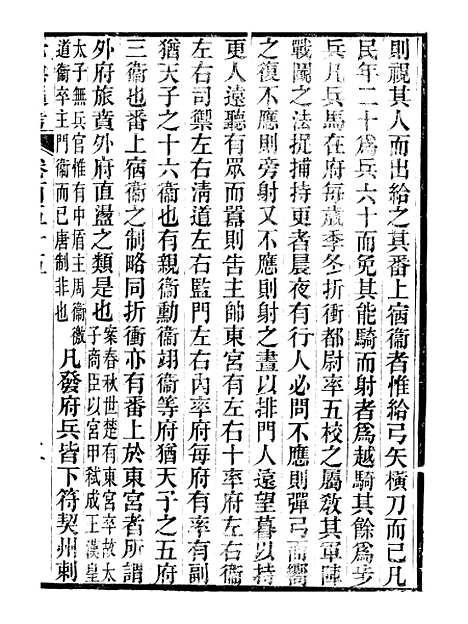 則視其人而出給之其番上宿衞者惟給弓矢橫刀而已凡
民年二十爲兵六十而免其能騎而射者爲越騎其餘爲步
兵凡兵馬在府每歲季冬折衝都尉率五校之屬敎其軍陣
戰鬭之法捉捕持更者晨夜有行人必問不應則彈弓而嚮
之復不應則旁射又不應則射之晝以排門人遠望暮以持
更人遠聽有眾而囂則告主帥東宮有左右十率府左右衞
左右司禦左右清道左右監門左右內率府每府有率有副
猶天子之十六衞也有親衞勳衞翊衞等府猶天子之五府
三衞也番上宿衞之制略同折衝亦有番上於東宮者所謂
外府旅賁外府直盪之類是也案春秋世楚有東宮卒故太
子商臣以宮甲弒成王漢皇
太子無兵官惟有中盾主周衞徼
道衞卒主門衞而已唐制非也凡發府兵皆下符契州刺